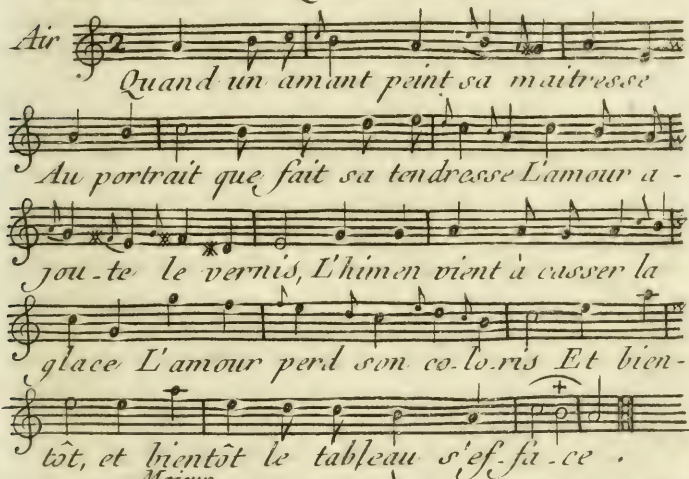 Air 2
Quand un amant peint sa maitresse
Au portrait que fait sa tendresse L'amour a-
jou-te le vernis, L'himen vient à casser la
glace L'amour perd son co-lo-ris Et bien-
tôt, et bientôt le tableau s'ef-fa-ce.